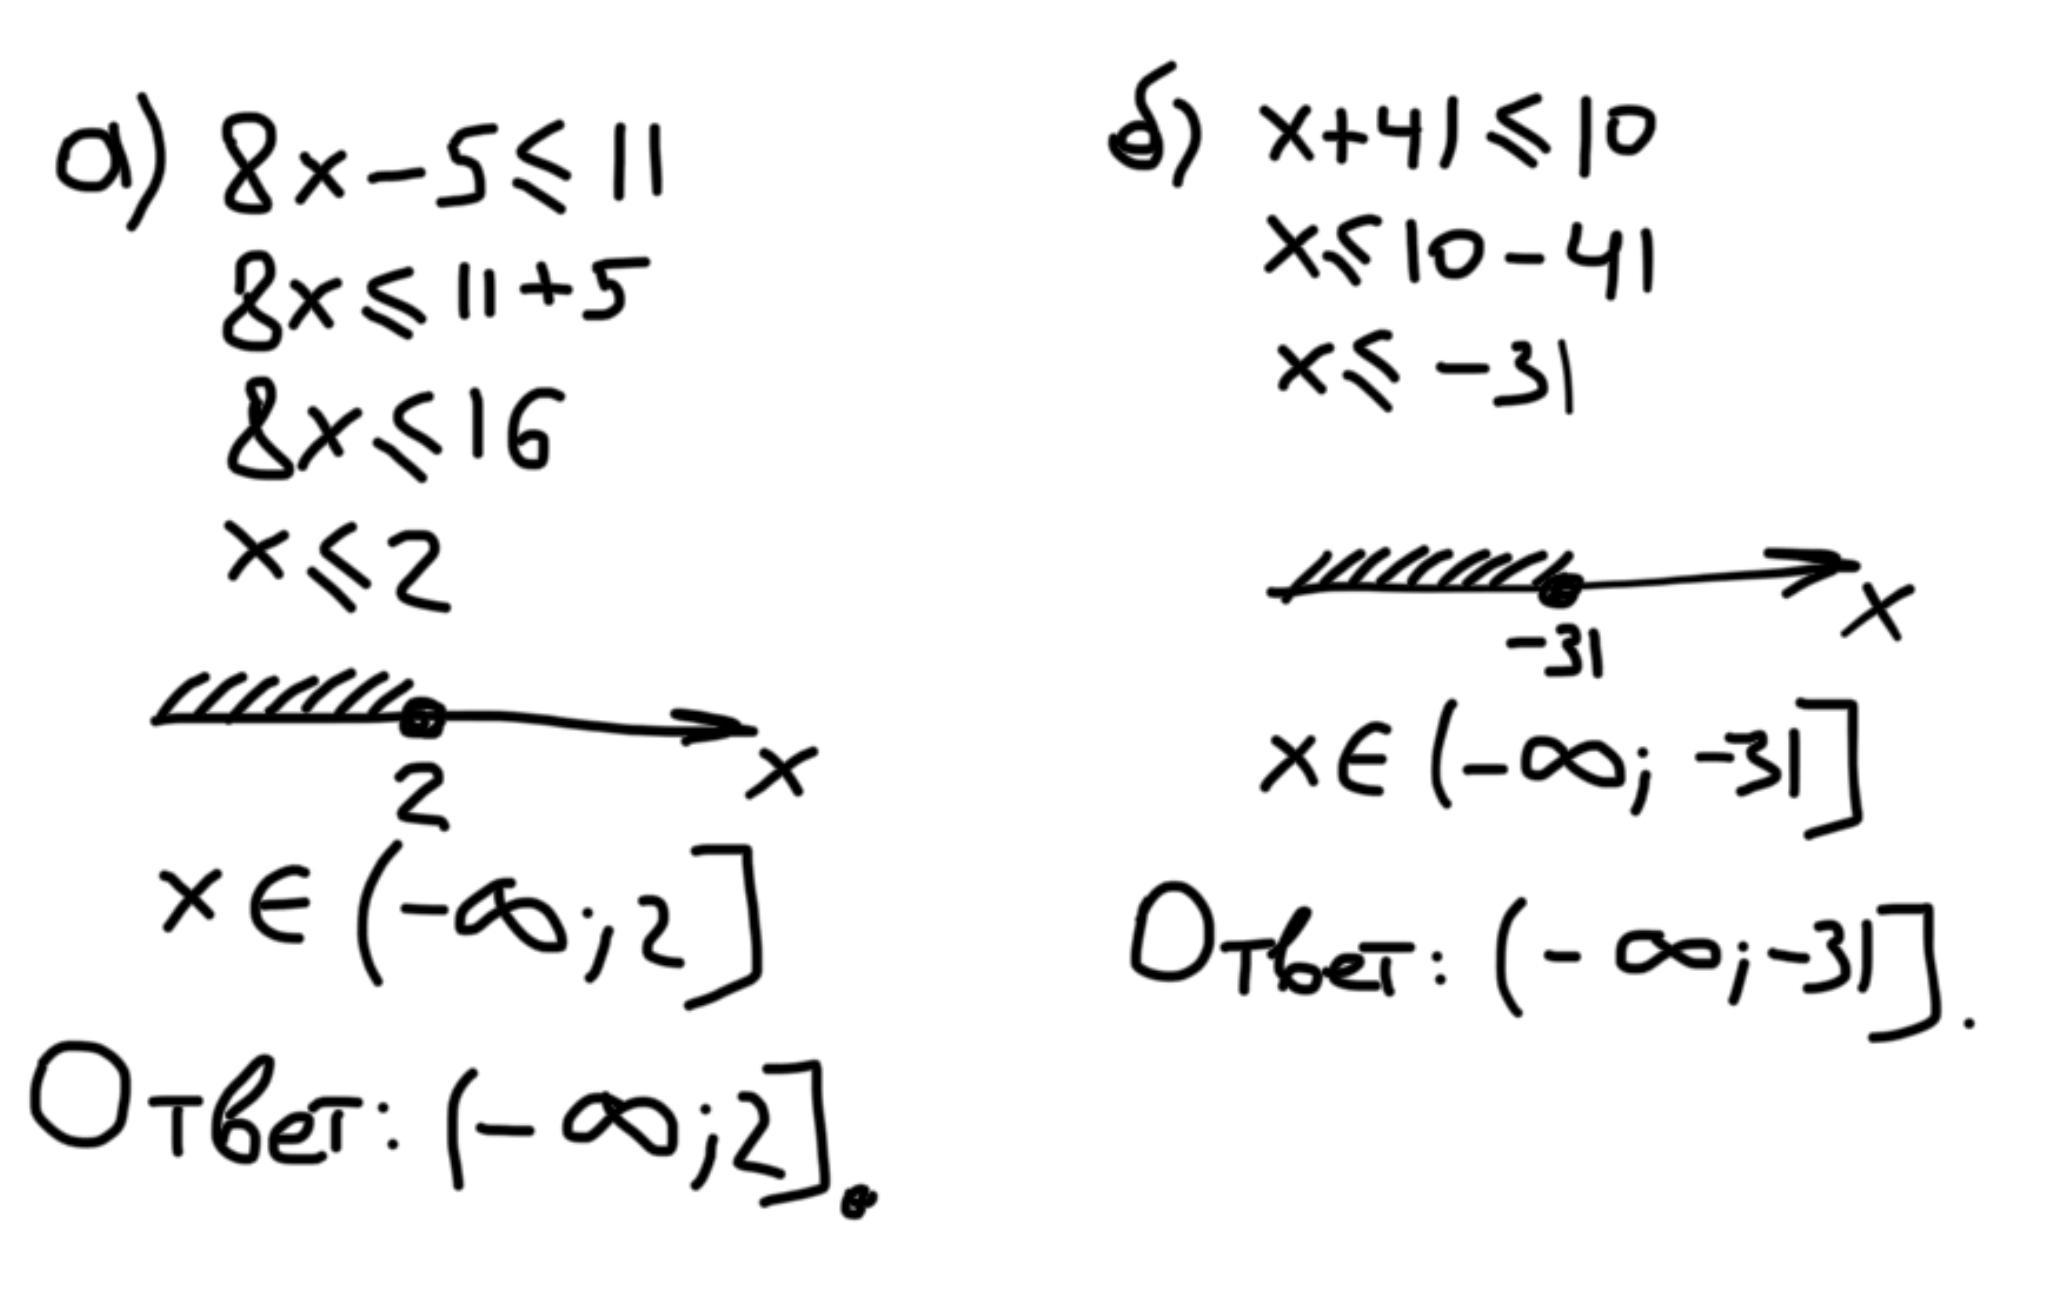 а) 8x - 5 ⩽ 11
8x ⩽ 11 + 5
8x ⩽ 16
x ⩽ 2
2
x
x ∈ (-∞; 2]
Ответ: (-∞; 2].
б) x + 41 ⩽ 10
x ⩽ 10 - 41
x ⩽ -31
-31
x
x ∈ (-∞; -31]
Ответ: (-∞; -31].